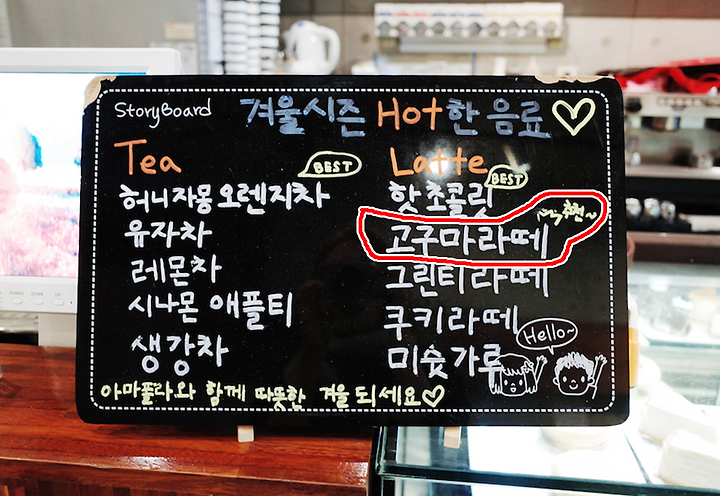 StoryBoard 겨울시즌 Hot한 음료
Tea
BEST
허니자몽오렌지차
유자차
레몬차
시나몬 애플티
생강차
Latte
BEST
핫초콜릿
추천~
고구마라떼
그린티라떼
쿠키라떼
미숫가루
Hello~
아마폴라와 함께 따뜻한 겨울되세요